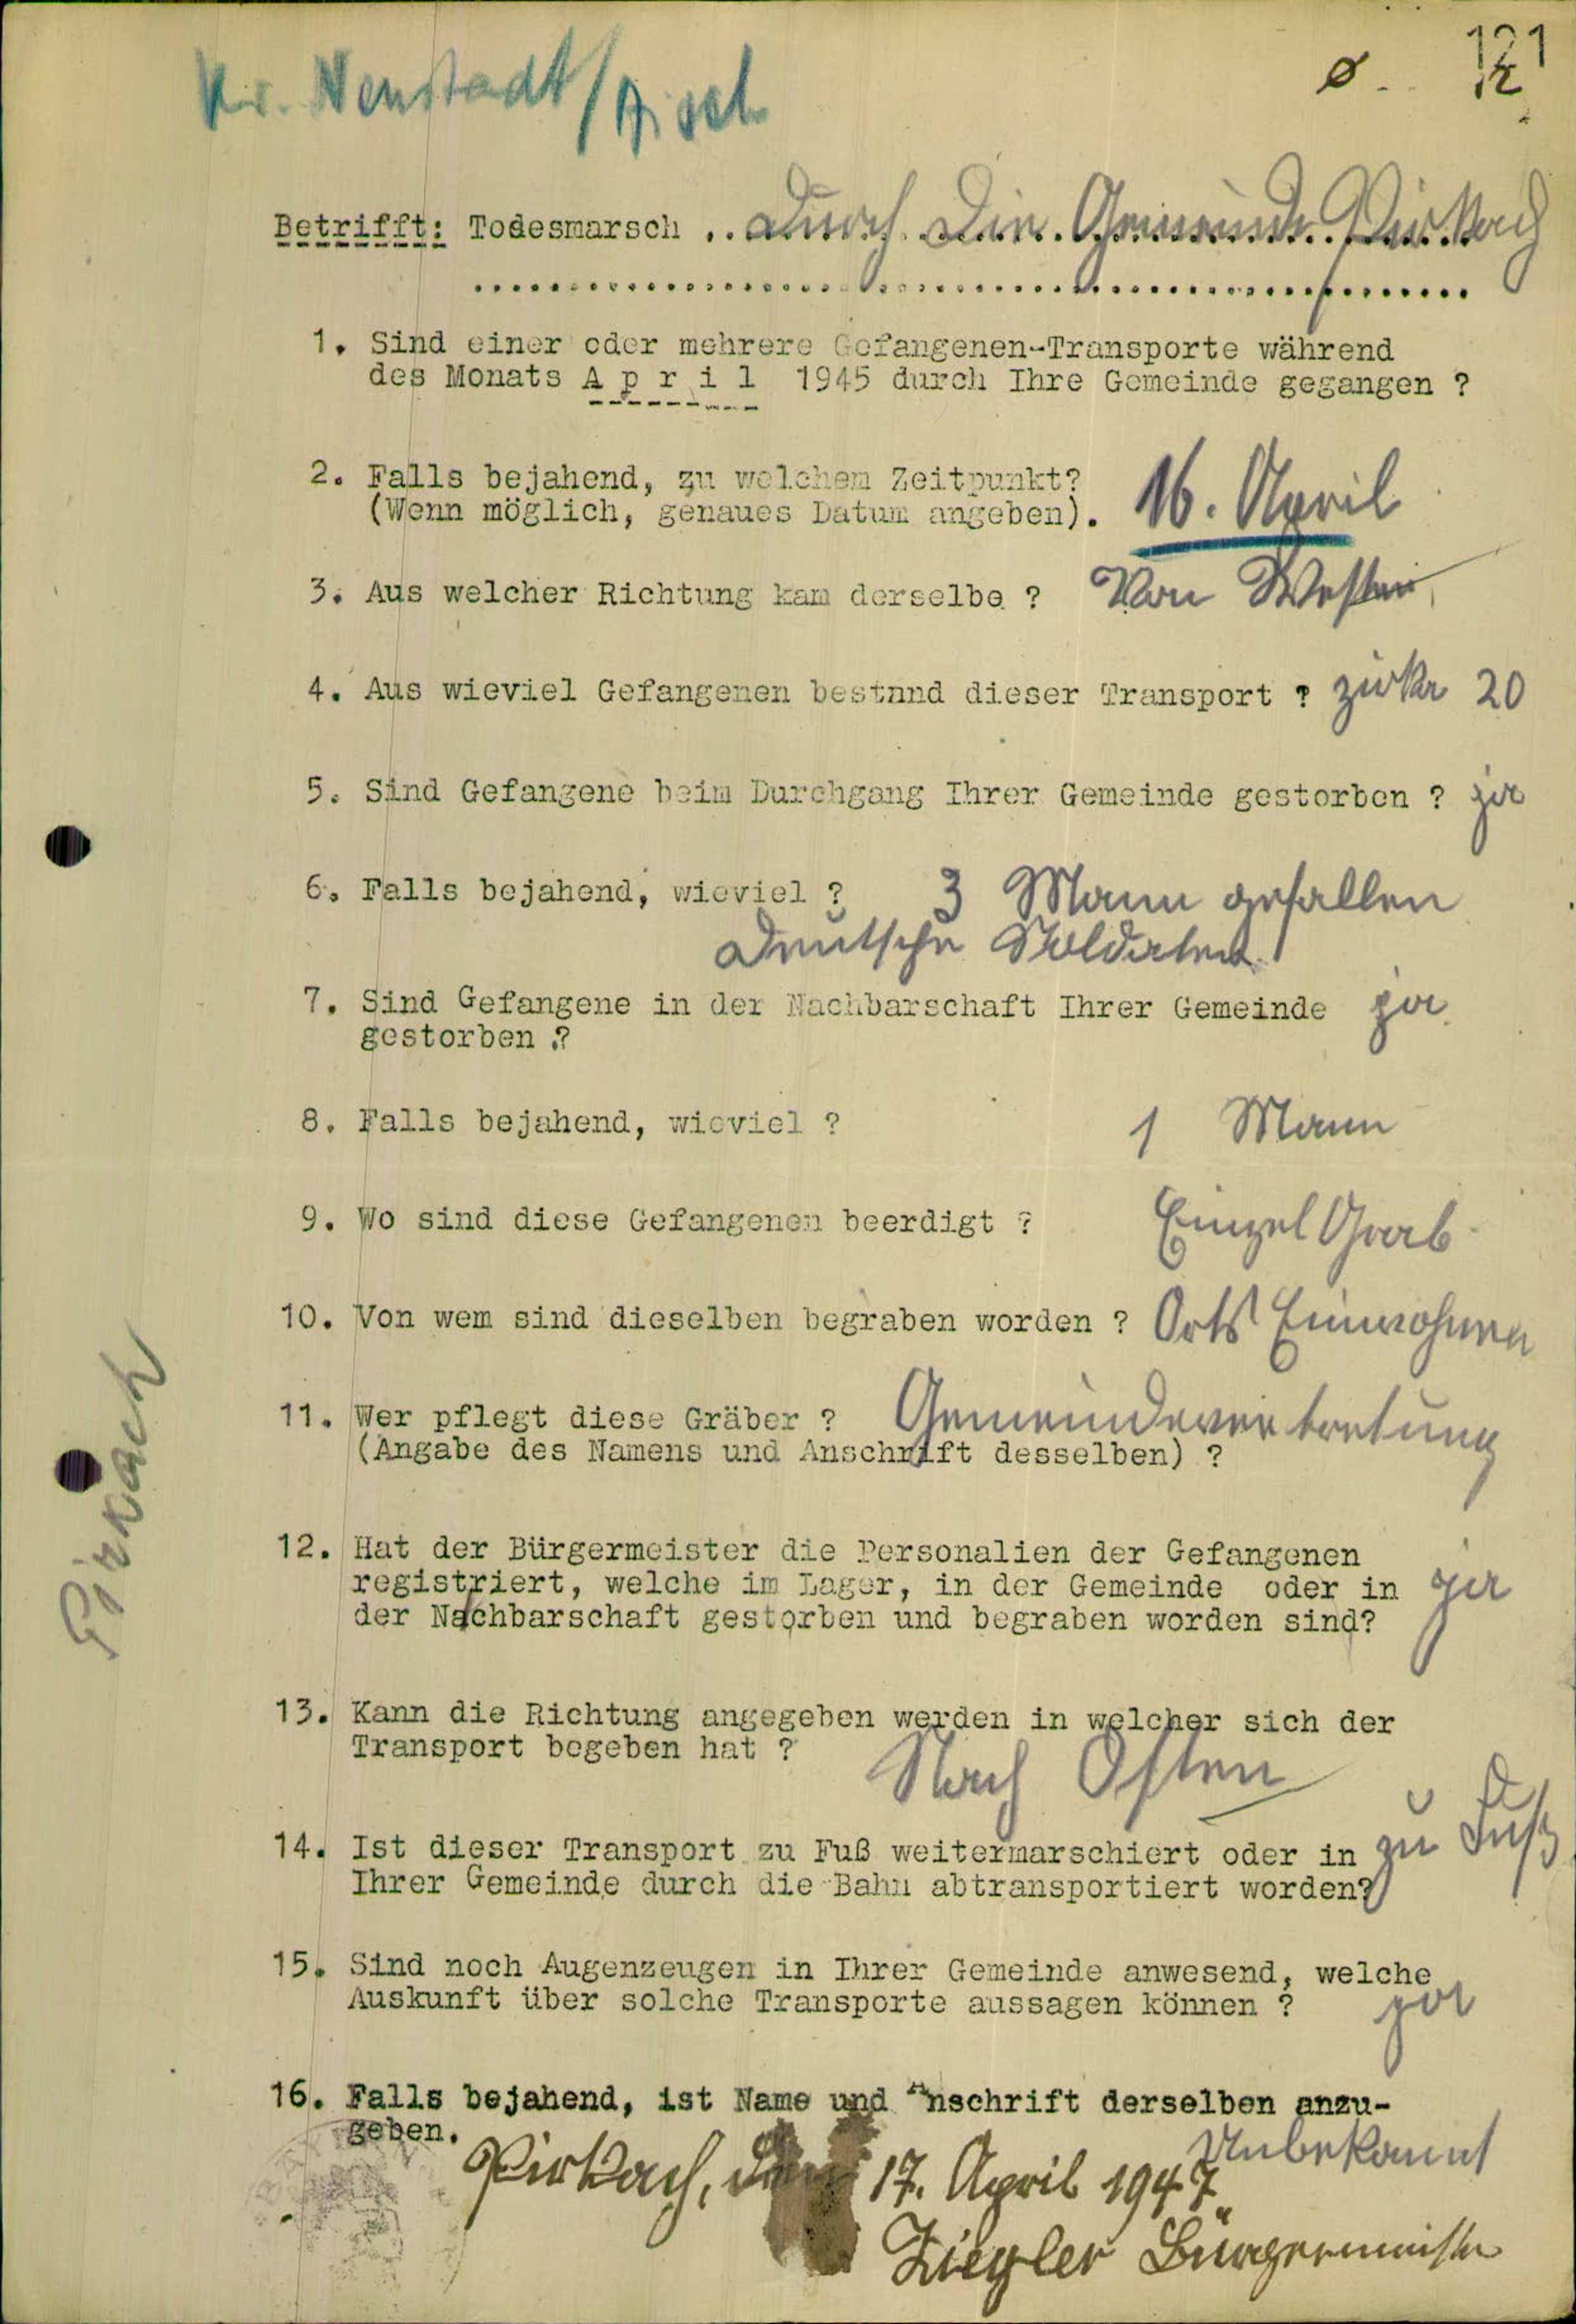 Kr. Neustadt/Aisch
121
Betrifft: Todesmarsch .. durch die Gemeinde Pirkach
1. Sind einer oder mehrere Gefangenen-Transporte während
des Monats A p r i l 1945 durch Ihre Gemeinde gegangen ?
2. Falls bejahend, zu welchem Zeitpunkt?
(Wenn möglich, genaues Datum angeben). 16. April
3. Aus welcher Richtung kam derselbe ? Von Westen
4. Aus wieviel Gefangenen bestnnd dieser Transport ? zirka 20
5. Sind Gefangene beim Durchgang Ihrer Gemeinde gestorben ? ja
6. Falls bejahend, wieviel ? 3 Mann gefallen
Deutsche Soldaten
7. Sind Gefangene in der Nachbarschaft Ihrer Gemeinde ja
gestorben ?
8. Falls bejahend, wieviel ? 1 Mann
9. Wo sind diese Gefangenen beerdigt ? Einzel Grab
10. Von wem sind dieselben begraben worden ? Orts Einwohner
11. Wer pflegt diese Gräber ? Gemeindevertretung
(Angabe des Namens und Anschrift desselben) ?
12. Hat der Bürgermeister die Personalien der Gefangenen
registriert, welche im Lager, in der Gemeinde oder in ja
der Nachbarschaft gestorben und begraben worden sind?
13. Kann die Richtung angegeben werden in welcher sich der
Transport begeben hat ? Nach Osten
14. Ist dieser Transport zu Fuß weitermarschiert oder in zu Fuß
Ihrer Gemeinde durch die Bahn abtransportiert worden?
15. Sind noch Augenzeugen in Ihrer Gemeinde anwesend, welche
Auskunft über solche Transporte aussagen können ? ja
16. Falls bejahend, ist Name und Anschrift derselben anzu-
geben. Unbekannt
Pirkach, den 17. April 1947
Ziegler Bürgermeister
Pirkach